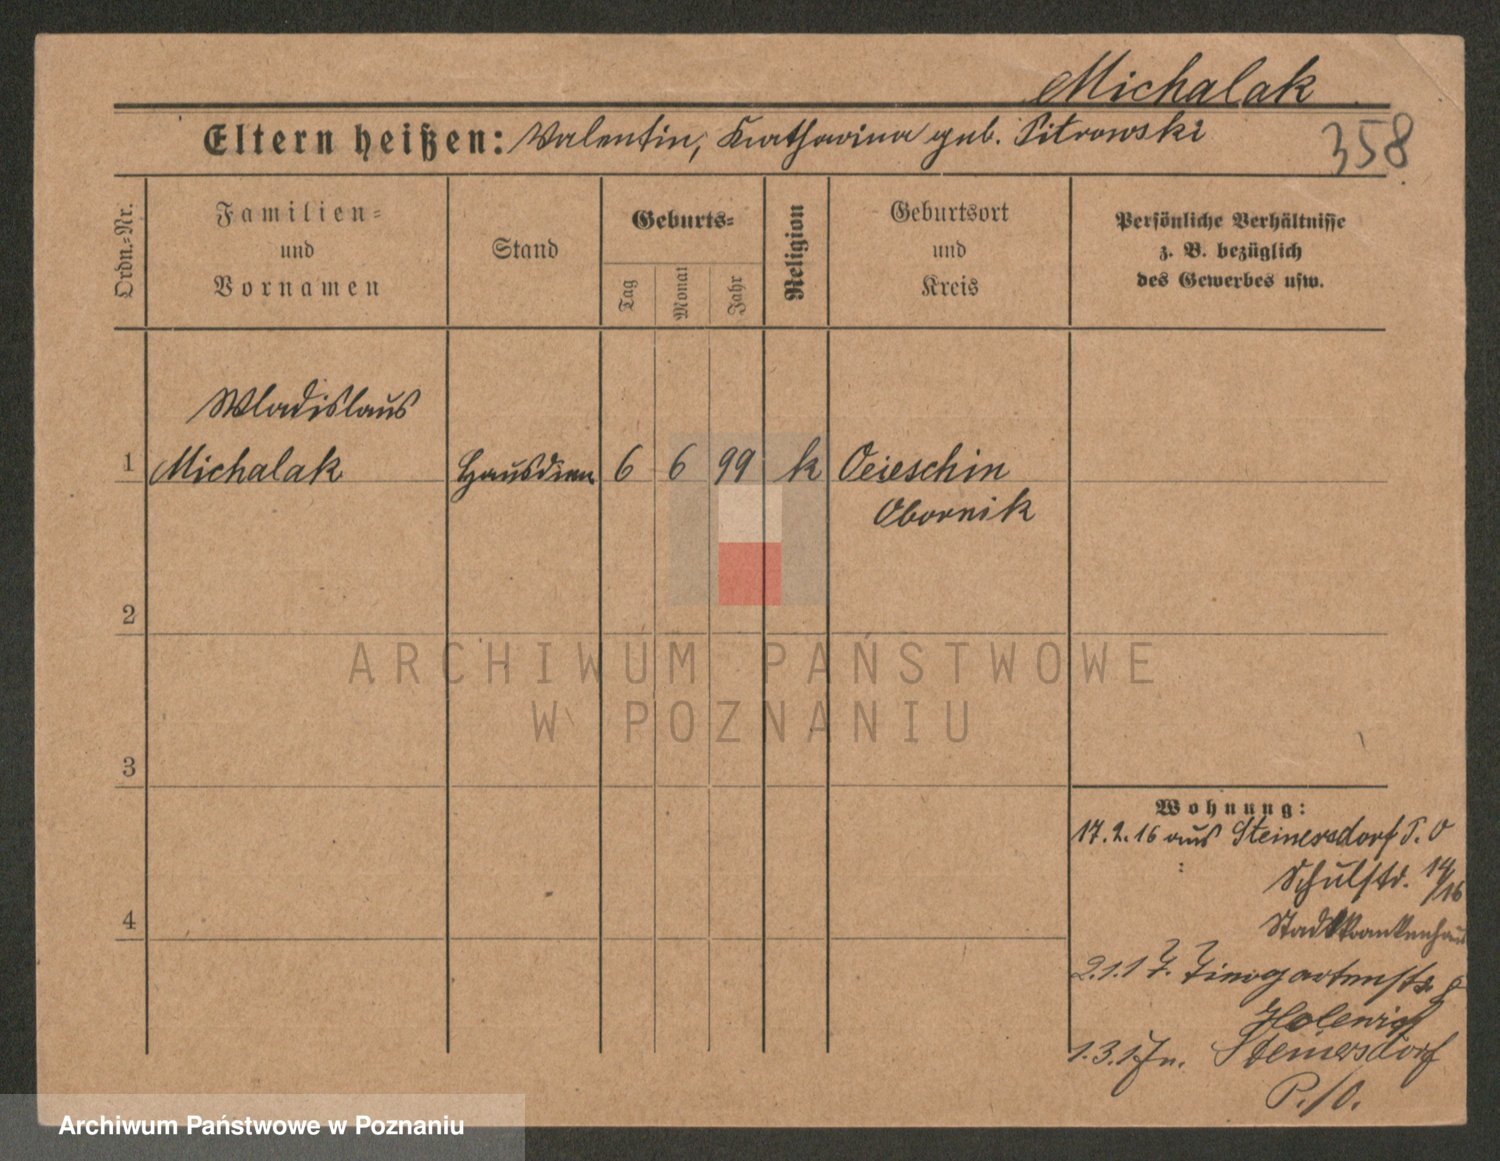 Michalak
Eltern heißen: Valentin, Katharina geb. Pitrowski
358
Ordn.=Nr.
Familien=
und
Vornamen
Stand
Geburts=
Tag
Monat
Jahr
Religion
Geburtsort
und
Kreis
Persönliche Verhältnisse
z. B. bezüglich
des Gewerbes usw.
Wladislaus
1 Michalak Hausdien 6 6 99 k
Obornik
2
3
4
ARCHIWUM PAŃSTWOWE
W POZNANIU
Wohnung:
17.2.16 aus Steinersdorf P. O
Schulstr. 14/16
Stadtkrankenhaus
2.1.17. Tiergartenstr
1.3.17 n. Steinersdorf
P./O.
Archiwum Państwowe w Poznaniu